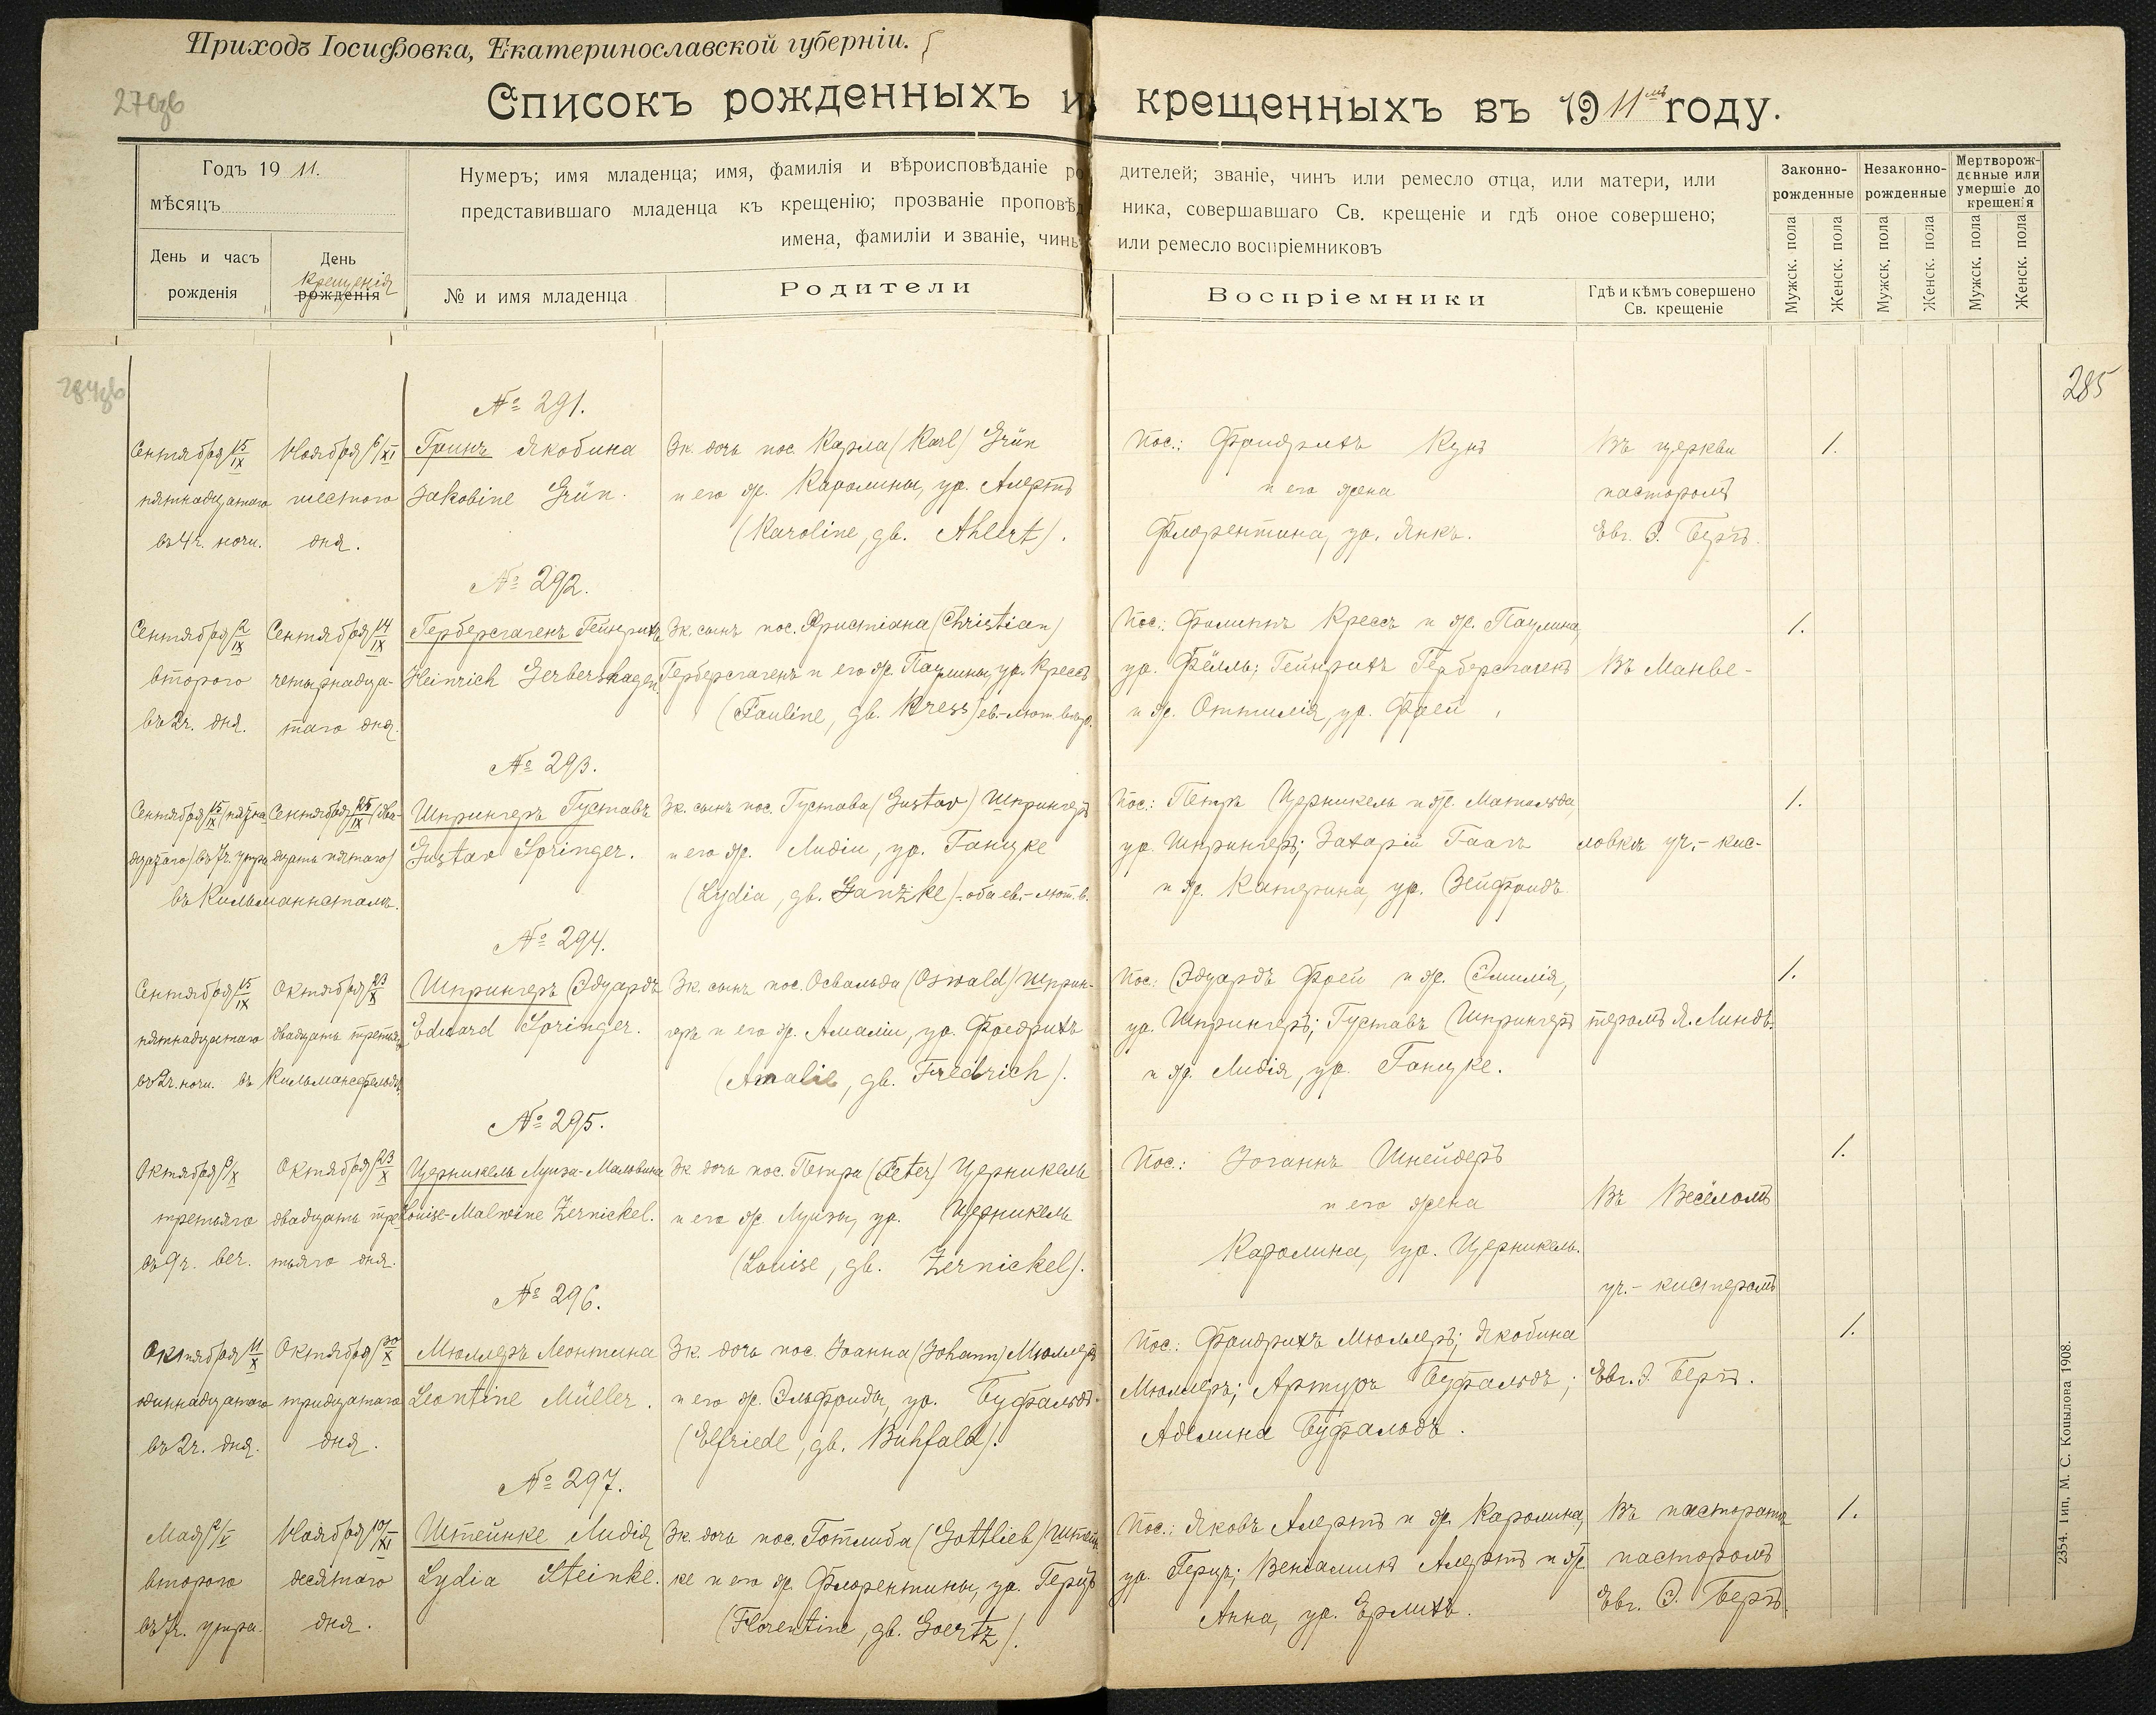 Приходъ Іосифовка, Екатеринославской губерніи.
Списокъ рожденныхъ и крещенныхъ въ 1911мъ году.
Годъ 19 11.
мѣсяцъ
День и часъ рожденія
День рожденія
крещенія
Нумеръ; имя младенца; имя, фамилія и вѣроисповѣданіе ро дителей; званіе, чинъ или ремесло отца, или матери, или
представившаго младенца къ крещенію; прозваніе проповѣд ника, совершавшаго Св. крещеніе и гдѣ оное совершено;
имена, фамиліи и званіе, чинъ или ремесло воспріемниковъ
№ и имя младенца
Родители
Воспріемники
Гдѣ и кѣмъ совершено
Св. крещеніе
Законно-
рожденные
Незаконно-
рожденные
Мертворож-
денные или
умершіе до
крещенія
Мужск. пола
Женск. пола
Мужск. пола
Женск. пола
Мужск. пола
Женск. пола
285
№ 291.
Сентября 15/IX
пятнадцатаго
въ 4 ч. ночи.
Ноября 6/XI
шестого
дня.
Гринъ Якобина
Jakobine Grün.
Зк. дочь пос. Карла (Karl) Grün
и его ж. Каролины, ур. Алертъ
(Karoline, gb. Ahlert).
Пос.: Фридрихъ Кунъ
и его жена
Флорентина, ур. Янкъ.
Въ церкви
пасторомъ
Евг. Э. Беръ.
1.
№ 292.
Сентября 2/IX
второго
въ 2 ч. дня.
Сентября 14/IX
четырнадца-
таго дня.
Герберсгагенъ Гейнрихъ
Heinrich Gerbershagen
Зк. сынъ пос. Христіана (Christian)
Герберсгагенъ и его ж. Паулины, ур. Крессъ
(Pauline, gb. Kress) ев.-лют. вѣр.
Пос.: Филиппъ Крессъ и ж. Паулина,
ур. Фёлль; Гейнрихъ Герберсгагенъ
и ж. Оттилія, ур. Фрей
Въ Манве-
1.
№ 293.
Сентября 15/IX (пятна-
дцатаго) въ 7 ч. утра
въ Кильманнсталь.
Сентября 25/IX (два-
дцать пятаго)
Шпрингеръ Густавъ
Gustav Springer.
Зк. сынъ пос. Густава (Gustav) Шпрингеръ
и его ж. Лидіи, ур. Ганцке
(Lydia, gb. Ganzke) - оба ев.-лют. в.
Пос.: Петръ Церникель и ж. Матильда,
ур. Шпрингеръ; Захарій Гаагъ
и ж. Катерина, ур. Зейфридъ
ловкѣ уч.- кис-
1.
№ 294.
Сентября 15/IX
пятнадцатаго
въ 2 ч. ночи. въ Кильмансфельдѣ.
Октября 23/X
двадцать третьяго
Шпрингеръ Эдуардъ
Eduard Springer.
Зк. сынъ пос. Освальда (Oswald) Шприн-
геръ и его ж. Амаліи, ур. Фредрихъ
(Amalie, gb. Fredrich).
Пос.: Эдуардъ Фрей и ж. Эмилія,
ур. Шпрингеръ; Густавъ Шпрингеръ
и ж. Лидія, ур. Ганцке.
теромъ Я. Линдъ.
1.
№ 295.
Октября 3/X
третьяго
въ 9 ч. веч.
Октября 23/X
двадцать тре-
тьяго дня.
Церникель Луиза-Мальвина
Louise-Malwine Zernickel.
Зк. дочь пос. Петра (Peter) Церникель
и его ж. Луизы, ур. Церникель
(Louise, gb. Zernickel).
Пос.: Іоганнъ Шнейдеръ
и его жена
Каролина, ур. Церникель.
Въ Весёломъ
уч.- кистеромъ
1.
№ 296.
Октября 11/X
одиннадцатаго
въ 2 ч. дня.
Октября 30/X
тридцатаго
дня.
Мюллеръ Леонтина
Leontine Müller.
Зк. дочь пос. Іоанна (Johann) Мюллеръ
и его ж. Эльфриды, ур. Буфальдъ.
(Elfriede, gb. Buhfald).
Пос.: Фридрихъ Мюллеръ; Якобина
Мюллеръ; Артуръ Буфальдъ;
Аделина Буфальдъ.
Евг. Э. Беръ.
1.
№ 297.
Мая 2/V
второго
въ 7 ч. утра.
Ноября 10/XI
десятаго
дня.
Штейнке Лидія
Lydia Steinke.
Зк. дочь пос. Готлиба (Gottlieb) Штейн-
ке и его ж. Флорентины, ур. Герцъ
(Florentine, gb. Goertz).
Пос.: Яковъ Алертъ и ж. Каролина,
ур. Герцъ; Веніаминъ Алертъ и ж.
Анна, ур. Ерлихъ.
Въ пасторатѣ
пасторомъ
Евг. Э. Беръ.
1.
2354. Тип. М. С. Копылова 1908.